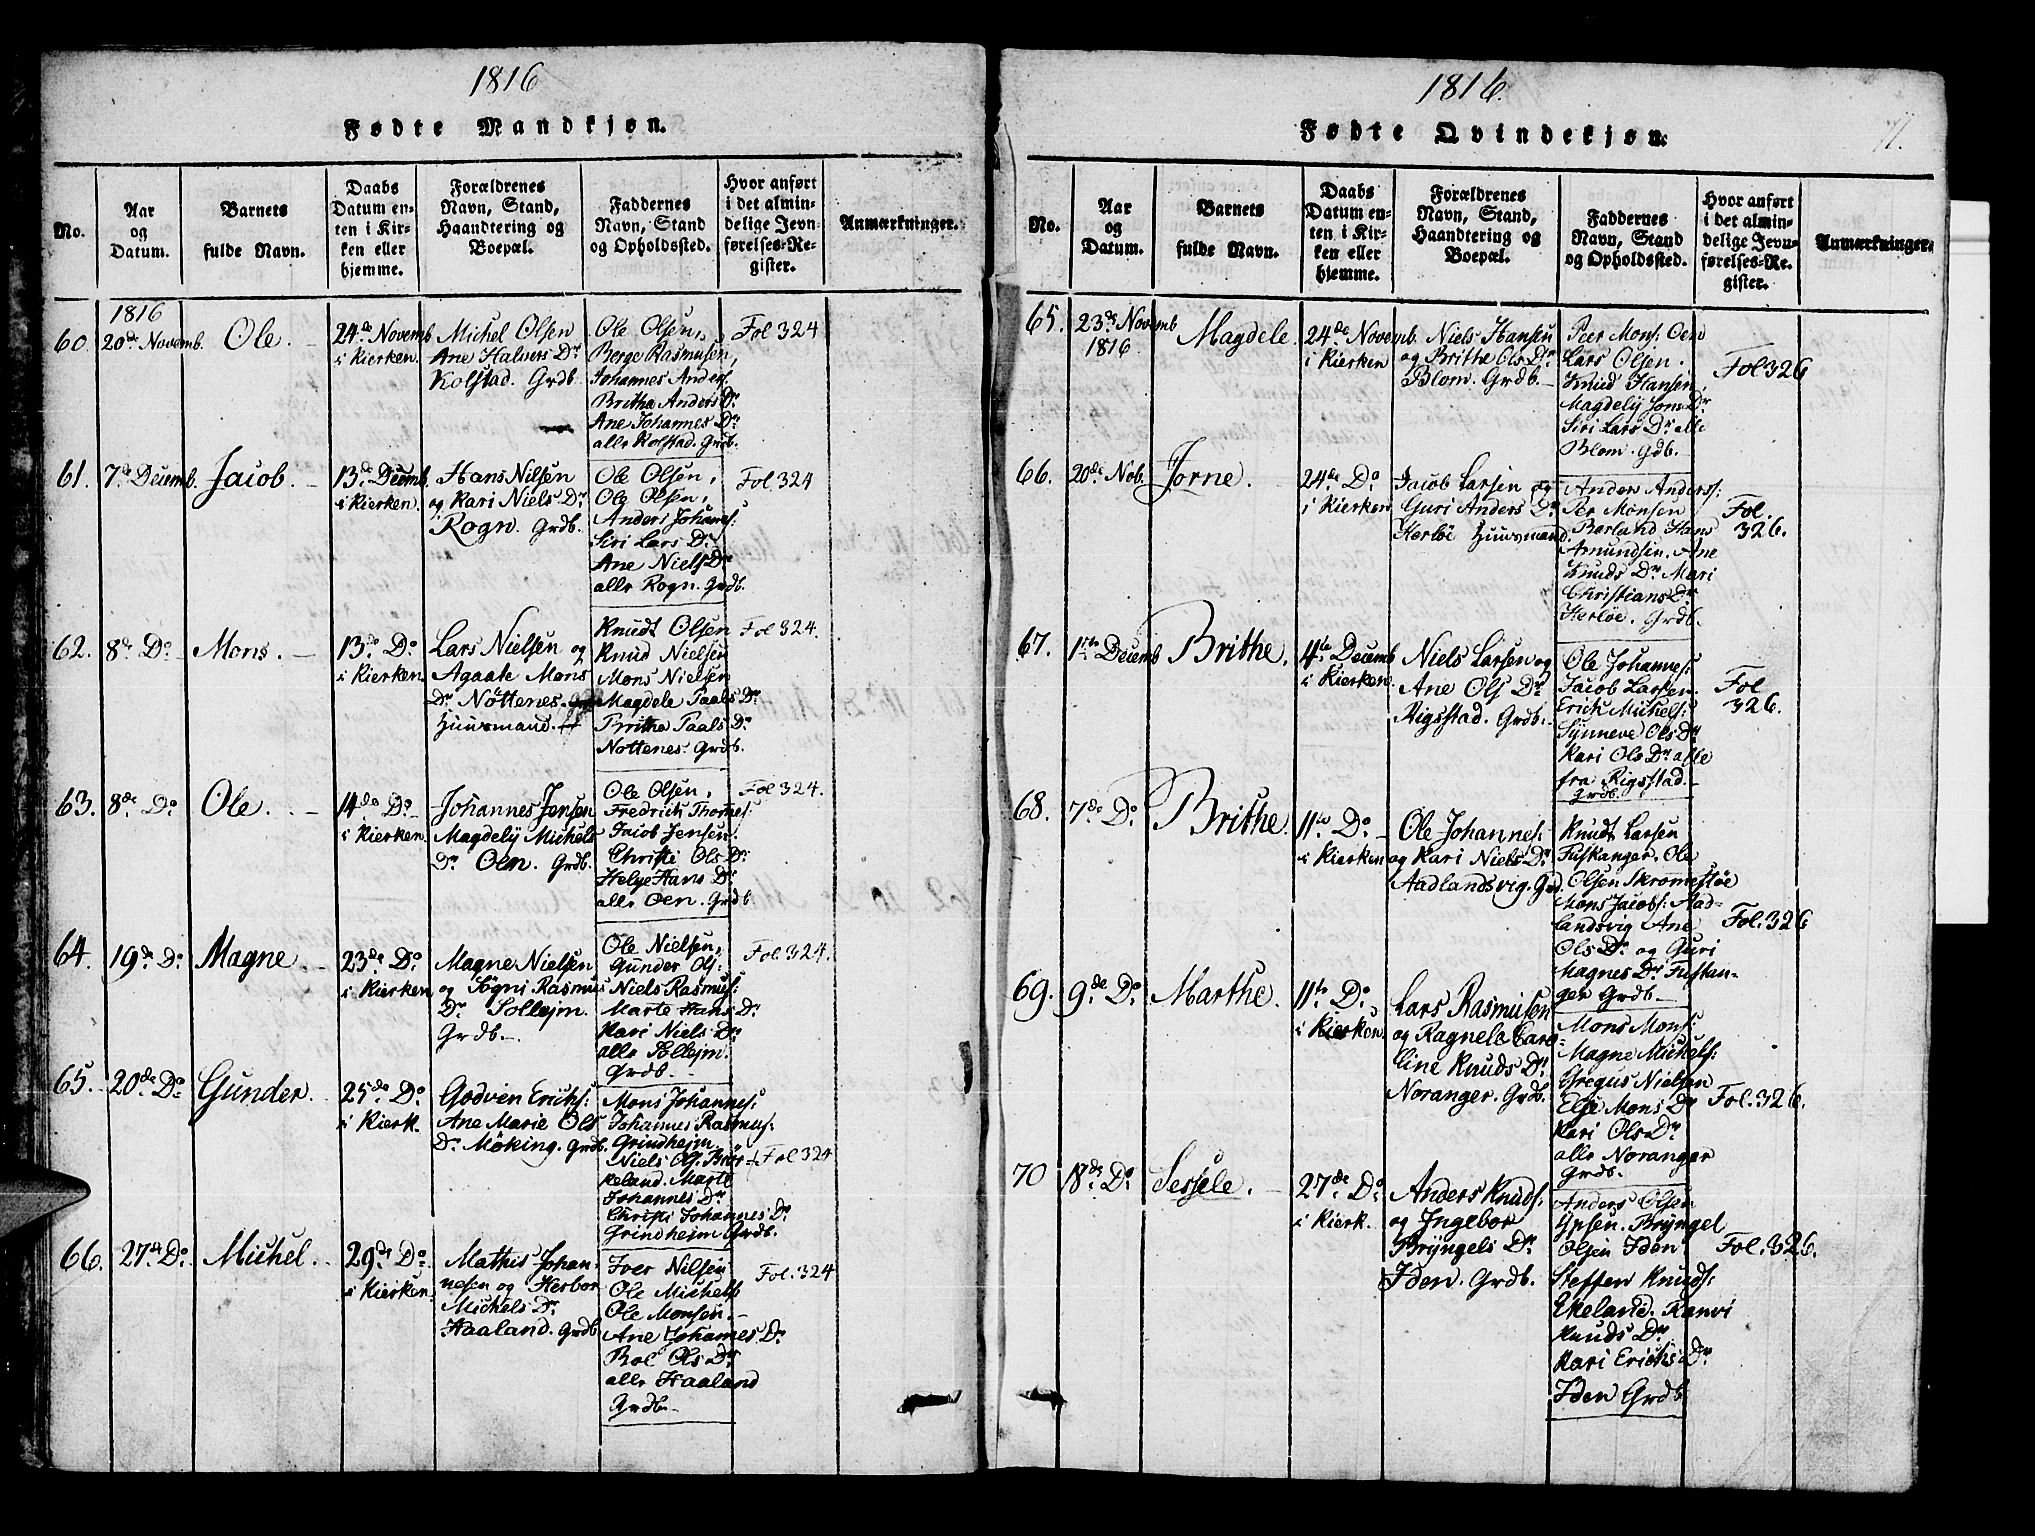 1816
Fødte Mandkjøn.
No.
Aar
og
Datum.
Barnets
fulde Navn.
Daabs
Datum en-
ten i Kir-
ken eller
hjemme.
Forældrenes
Navn, Stand,
Haandtering og
Boepæl.
Faddernes
Navn, Stand
og Opholdssted.
Hvor anført
i det almin-
delige Jevn-
førelses-Re-
gister.
Anmærkninger.
1816
60.
20de Novemb.
Ole.
24de Novemb
i Kierken.
Michel Olsen
Ane Halvers Dr
Kolstad. Grdb.
Ole Olsen,
Berge Rasmusen,
Johannes Anders:
Britha Anders Dr
Ane Johannes Dr
alle Kolstad. Grdb.
Fol 324
61.
7de Decemb.
Jacob.
13de Decemb.
i Kierken.
Hans Nilsen
og Kari Niels Dr
Rogn. Grdb.
Ole Olsen,
Ole Olsen,
Anders Johanes:
Siri Lars Dr
Ane Niels Dr
alle Rogn. Grdb.
Fol. 324
62.
8de Do
Mons.
13de Do
i Kierken.
Lars Nielsen og
Agaate Mons
Dr Nöttenes.
Huusmand.
Knudt Olsen
Knud Nielsen
Mons Nielsen
Magdele Paals Dr
Britha Paals Dr
Nottenes. Grdb.
Fol 324.
63.
8de Do
Ole.
14de Do
i Kierken.
Johannes Jensen
Magdely Michels
Dr Oen. Grdb.
Ole Olsen,
Fredrich Thomes:
Jacob Jensen.
Christi Ols Dr
Helge Hans Dr
alle Oen. Grdb
Fol 324.
64.
19de Do
Magne.
23de Do
i Kierken
Magne Nielsen
og Sögni Rasmus
Dr Sollejm.
Grdb.
Ole Nielsen,
Gunder Ols:
Niels Rasmus:
Marte Hans Dr
Kari Niels Dr
alle Sollejm.
Grdb.
Fol. 324.
65.
20de Do
Gunder.
25de Do
i Kierk.
Godven Erichs:
Ane Marie Ols
Dr Möking. Grdb.
Mons Johannes:
Johannes Rasmus:
Grindhejm.
Niels Ols. Brör-
keland. Marte
Johannes Dr
Christi Johannes Dr
Grindhejm Grdb.
Fol 324
66.
27de Do
Michel.
29de Do
i Kierken.
Mathis Johan-
nesen og Herbor
Michels Dr
Haaland. Grdb
Iver Nilsen
Ole Michels
Ole Monsen.
Ane Johannes Dr
Rol Ols Dr
alle Haaland
Grdb.
Fol. 324
1816.
71.
Fødte Qvindekjøn.
No.
Aar
og
Datum.
Barnets
fulde Navn.
Daabs
Datum en-
ten i Kir-
ken eller
hjemme.
Forældrenes
Navn, Stand,
Haandtering og
Boepæl.
Faddernes
Navn, Stand
og Opholdssted.
Hvor anført
i det almin-
delige Jevn-
førelses-Re-
gister.
Anmærkninger.
65.
23de Novemb
1816
Magdele.
24de Novemb.
i Kierken
Niels Hansen
og Brithe Ols Dr
Blom. Grdb.
Peer Mons: Oen
Lars Olsen.
Knud Hansen,
Magdely Jons Dr
Siri Lars Dr alle
Blom. Gdb.
Fol 326
66.
20de Nob.
Jorne.
24de Do
i Kierken
Jacob Larsen og
Guri Anders Dr
Herlöe Huusmand.
Anders Anderss:
Per Monsen
Berland Hans
Amundsen. Ane
Knuds Dr Mari
Christians Dr
Herlöe. Grdb.
Fol.
326.
67.
1ste Decemb
Brithe.
4de Decemb
i Kierken.
Niels Larsen og
Ane Ols Dr
Rigstad. Grdb.
Ole Johannes:
Jacob Larsen.
Erich Michels:
Synneve Ols Dr
Kari Ols Dr alle
fra Rigstad.
Grdb.
Fol
326.
68.
7de Do
Brithe.
11te Do
i Kierken
Ole Johannes:
og Kari Niels Dr
Aadlandsvig. Grd.
Knudt Larsen
Fuskanger. Ole
Olsen Skromestöe
Mons Jacobs: Aad-
landsvig Ane
Ols Dr og Guri
Magnes Dr Fustan-
ger Grdb.
Fol. 326
69.
9de Do
Marthe.
11te Do
i Kierken.
Lars Rasmusen
og Ragnele Caro-
line Knuds Dr
Noranger. Grdb.
Mons Mons:
Magne Michels:
Gregus Nielsen
Else Mons Dr
Kari Ols Dr
alle Noranger
Grdb.
Fol. 326.
70
18de Do
Sessele.
27de Do
i Kierk.
Anders Knuds:
og Ingebor
Bryngels Dr
Iden. Grdb.
Anders Olsen
Ypsen. Bryngel
Olsen Iden.
Steffen Knuds:
Ekeland. Ranvi
Knuds Dr
Kari Erichs Dr
Iden Grdb.
Fol. 326.